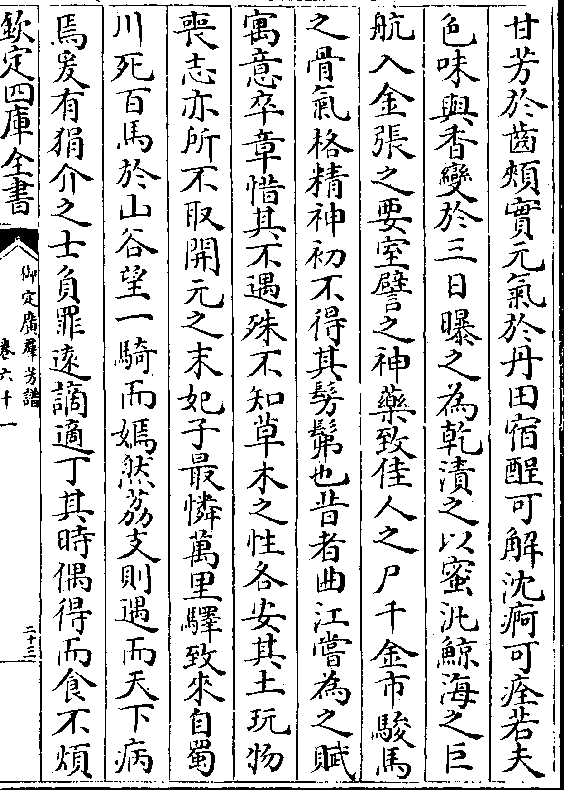 甘芳於齒頰實元氣於丹田宿酲可解沈痾可痊若夫
色味與香變於三日曝之為乾漬之以蜜泚鯨海之巨
航入金張之要室譬之神藥致佳人之尸千金市駿馬
之骨氣格精神初不得其髣髴也昔者曲江嘗為之賦
寓意卒章惜其不遇殊不知草木之性各安其土玩物
喪志亦所不取開元之末妃子最憐萬里驛致來自蜀
川死百馬於山谷望一騎而嫣然荔支則遇而天下病
焉爰有狷介之士負罪逺謫適丁其時偶得而食不煩
欽定四庫全書
御定廣羣芳譜
卷六十一
二十三